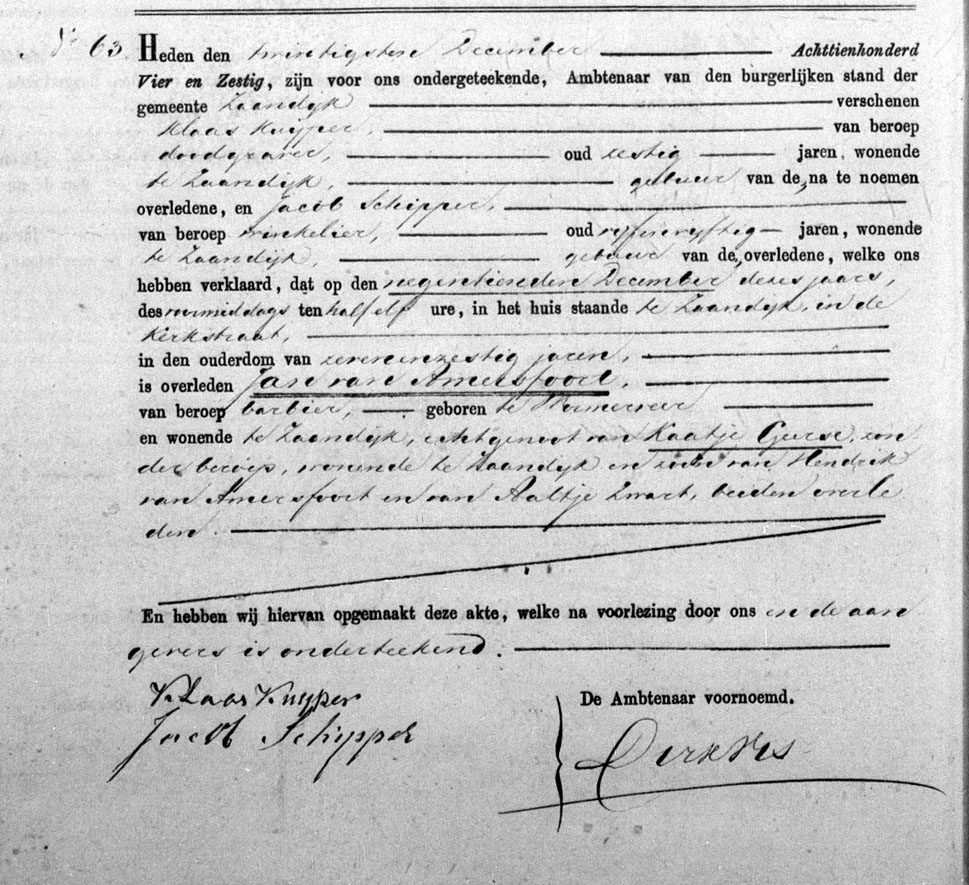 No 63. Heden den twintigsten December Achttienhonderd
Vier en Zestig, zijn voor ons ondergeteekende, Ambtenaar van den burgerlijken stand der
gemeente Zaandyk verschenen
Klaas Kuyper, van beroep
doodgraver, oud zestig jaren, wonende
te Zaandyk, gebuur van de na te noemen
overledene, en Jacob Schipper,
van beroep winkelier, oud vyfenvyftig jaren, wonende
te Zaandyk, gebuur van de overledene, welke ons
hebben verklaard, dat op den negentienden December dezes jaars,
des voormiddags ten half elf ure, in het huis staande te Zaandyk, in de
Kerkstraat,
in den ouderdom van zevenenzestig jaren,
is overleden Jan van Amersfoort,
van beroep barbier, geboren te Wormerveer
en wonende te Zaandyk, echtgenoot van Kaatje Gurse, zon
der beroep, wonende te Zaandyk en zoon van Hendrik
van Amersfoort en van Aaltje Zwart, beiden overle
den.
En hebben wij hiervan opgemaakt deze akte, welke na voorlezing door ons en de aan
gevers is onderteekend.
Klaas Kuyper
Jacob Schipper
De Ambtenaar voornoemd.
Dirk Vis